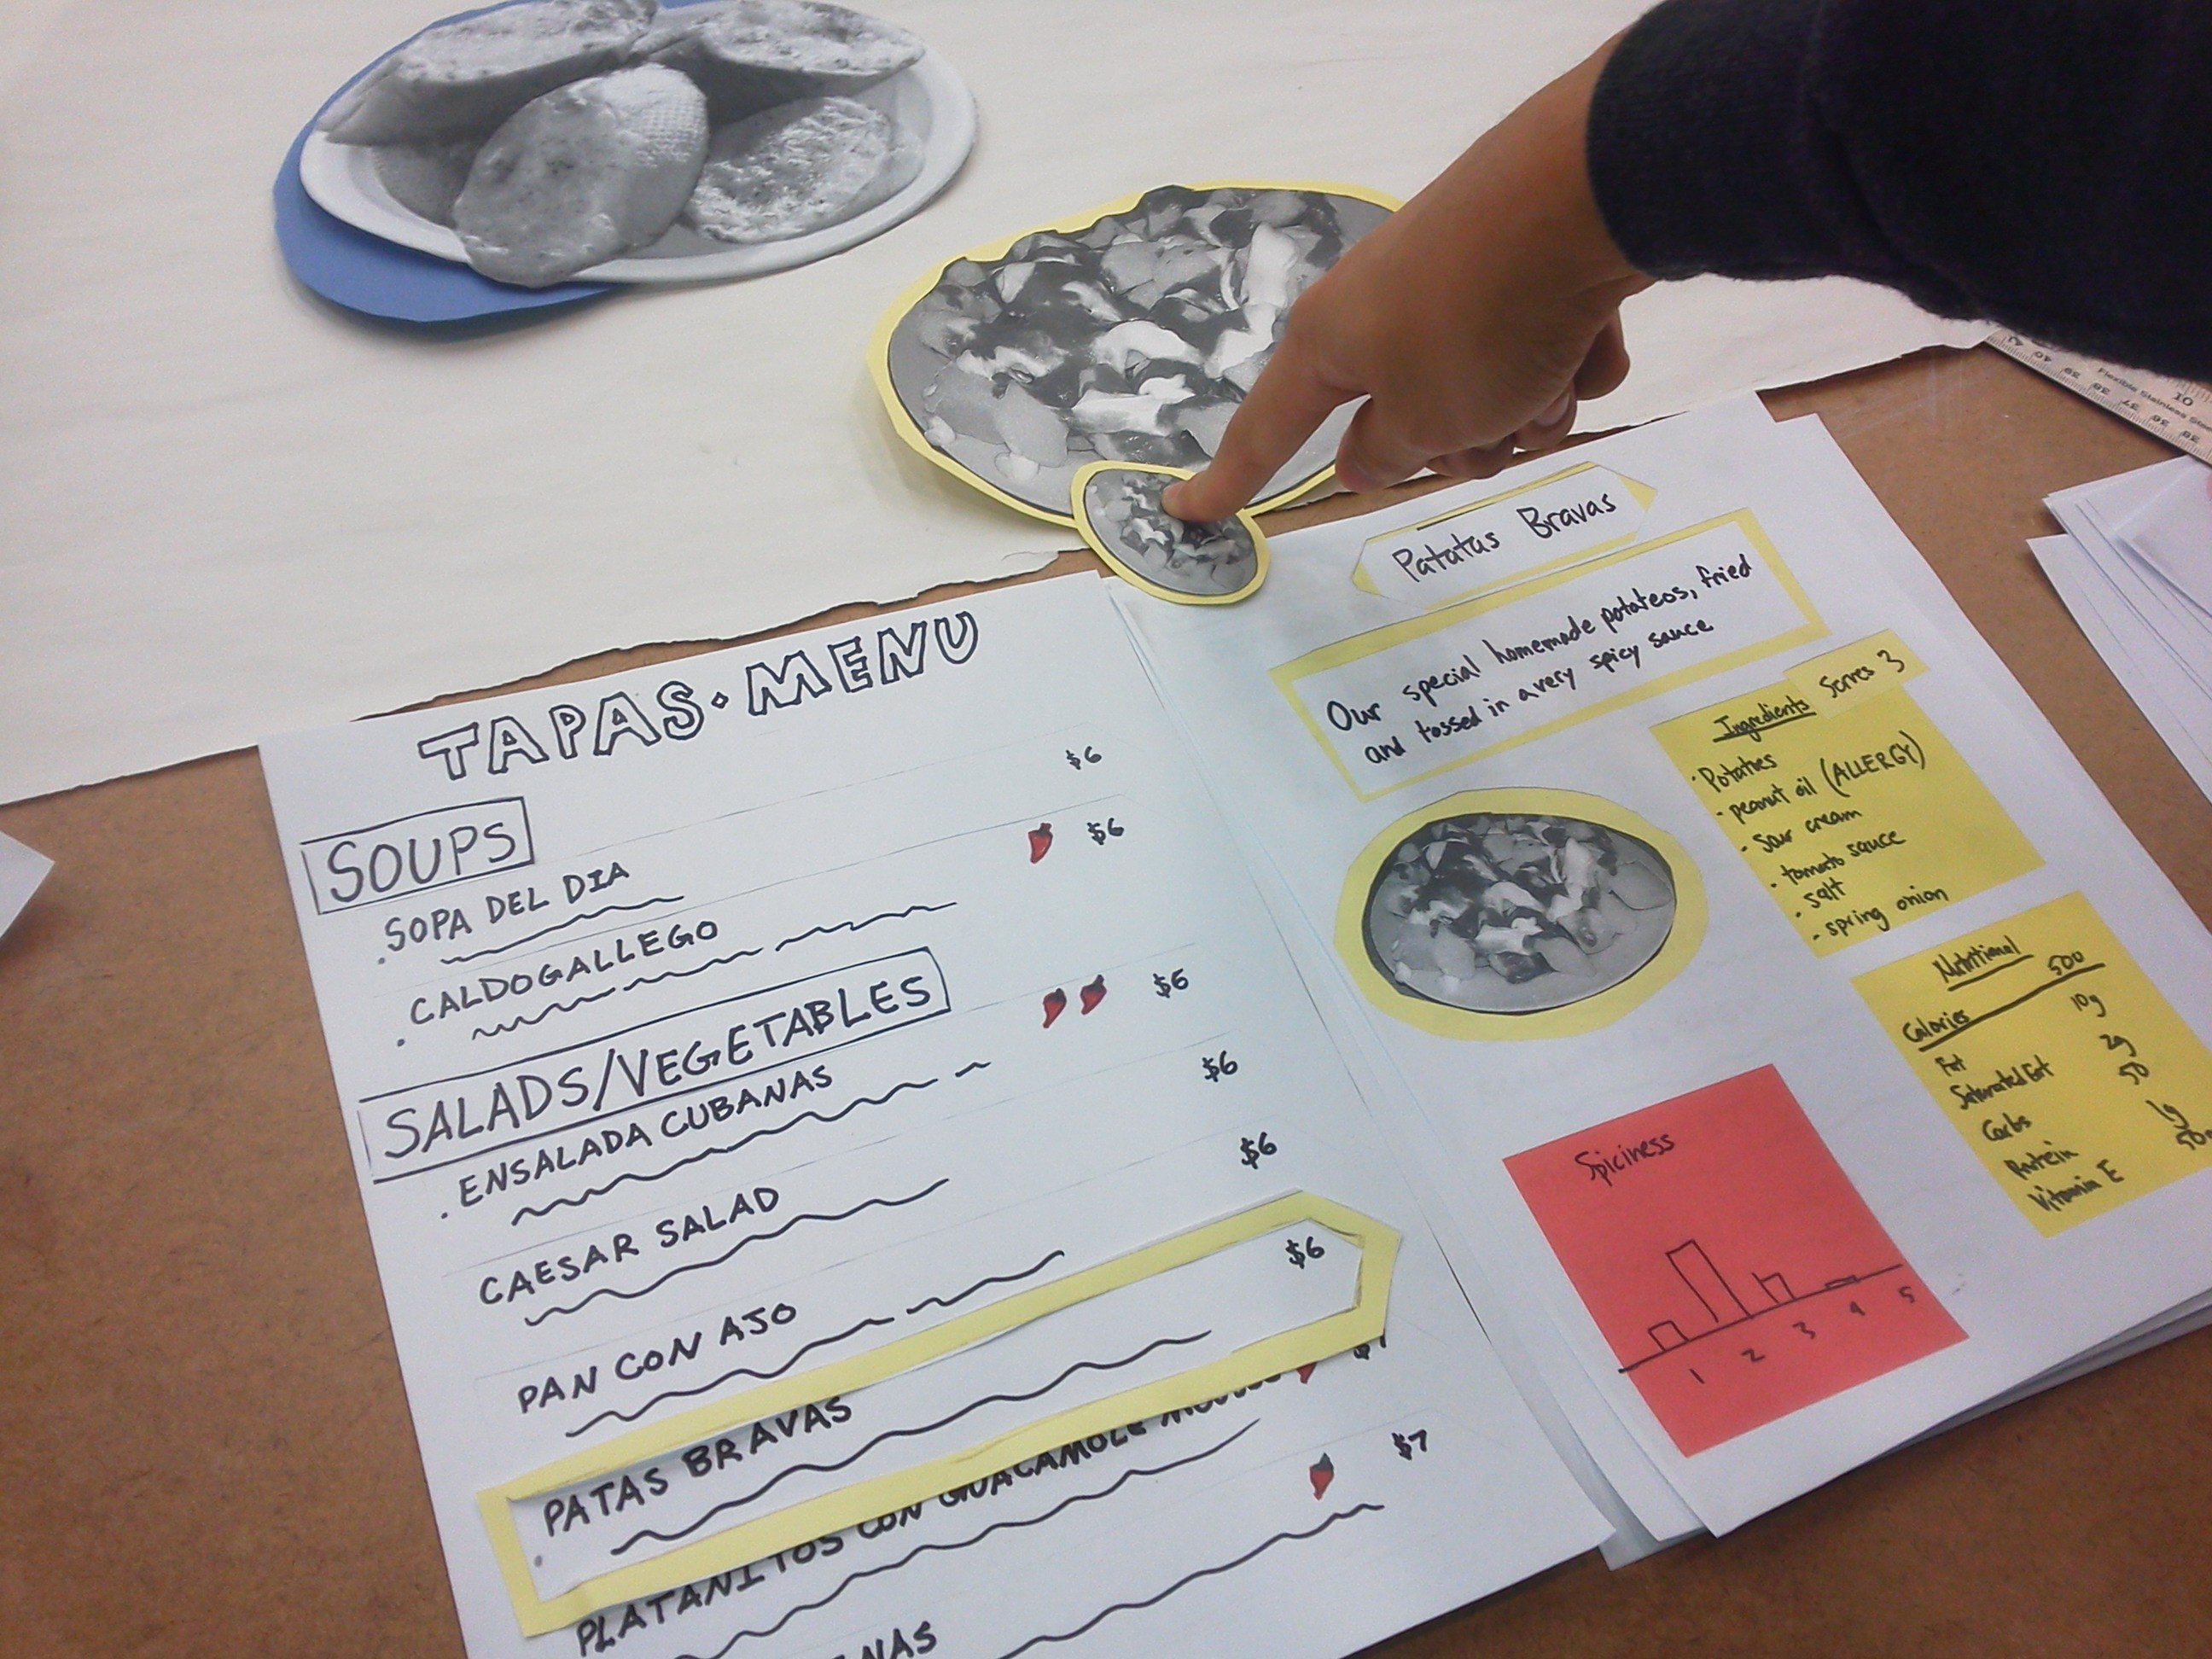 TAPAS • MENU
SOUPS
• SOPA DEL DIA $6
• CALDOGALLEGO $6
SALADS/VEGETABLES
• ENSALADA CUBANAS $6
CAESAR SALAD $6
PAN CON AJO $6
• PATAS BRAVAS $6
PLATANITOS CON GUACAMOLE
$7
Patatas Bravas
Our special homemade potateos, fried
and tossed in a very spicy sauce
Serves 3
Ingredients
• Potatoes
• peanut oil (ALLERGY)
• sour cream
• tomato sauce
• salt
• spring onion
Nutritional
Calories 500
Fat 10g
Saturated Fat 2g
Carbs 50
Protein 1g
Vitamin E
Spiciness
1 2 3 4 5
Flexible Stainless